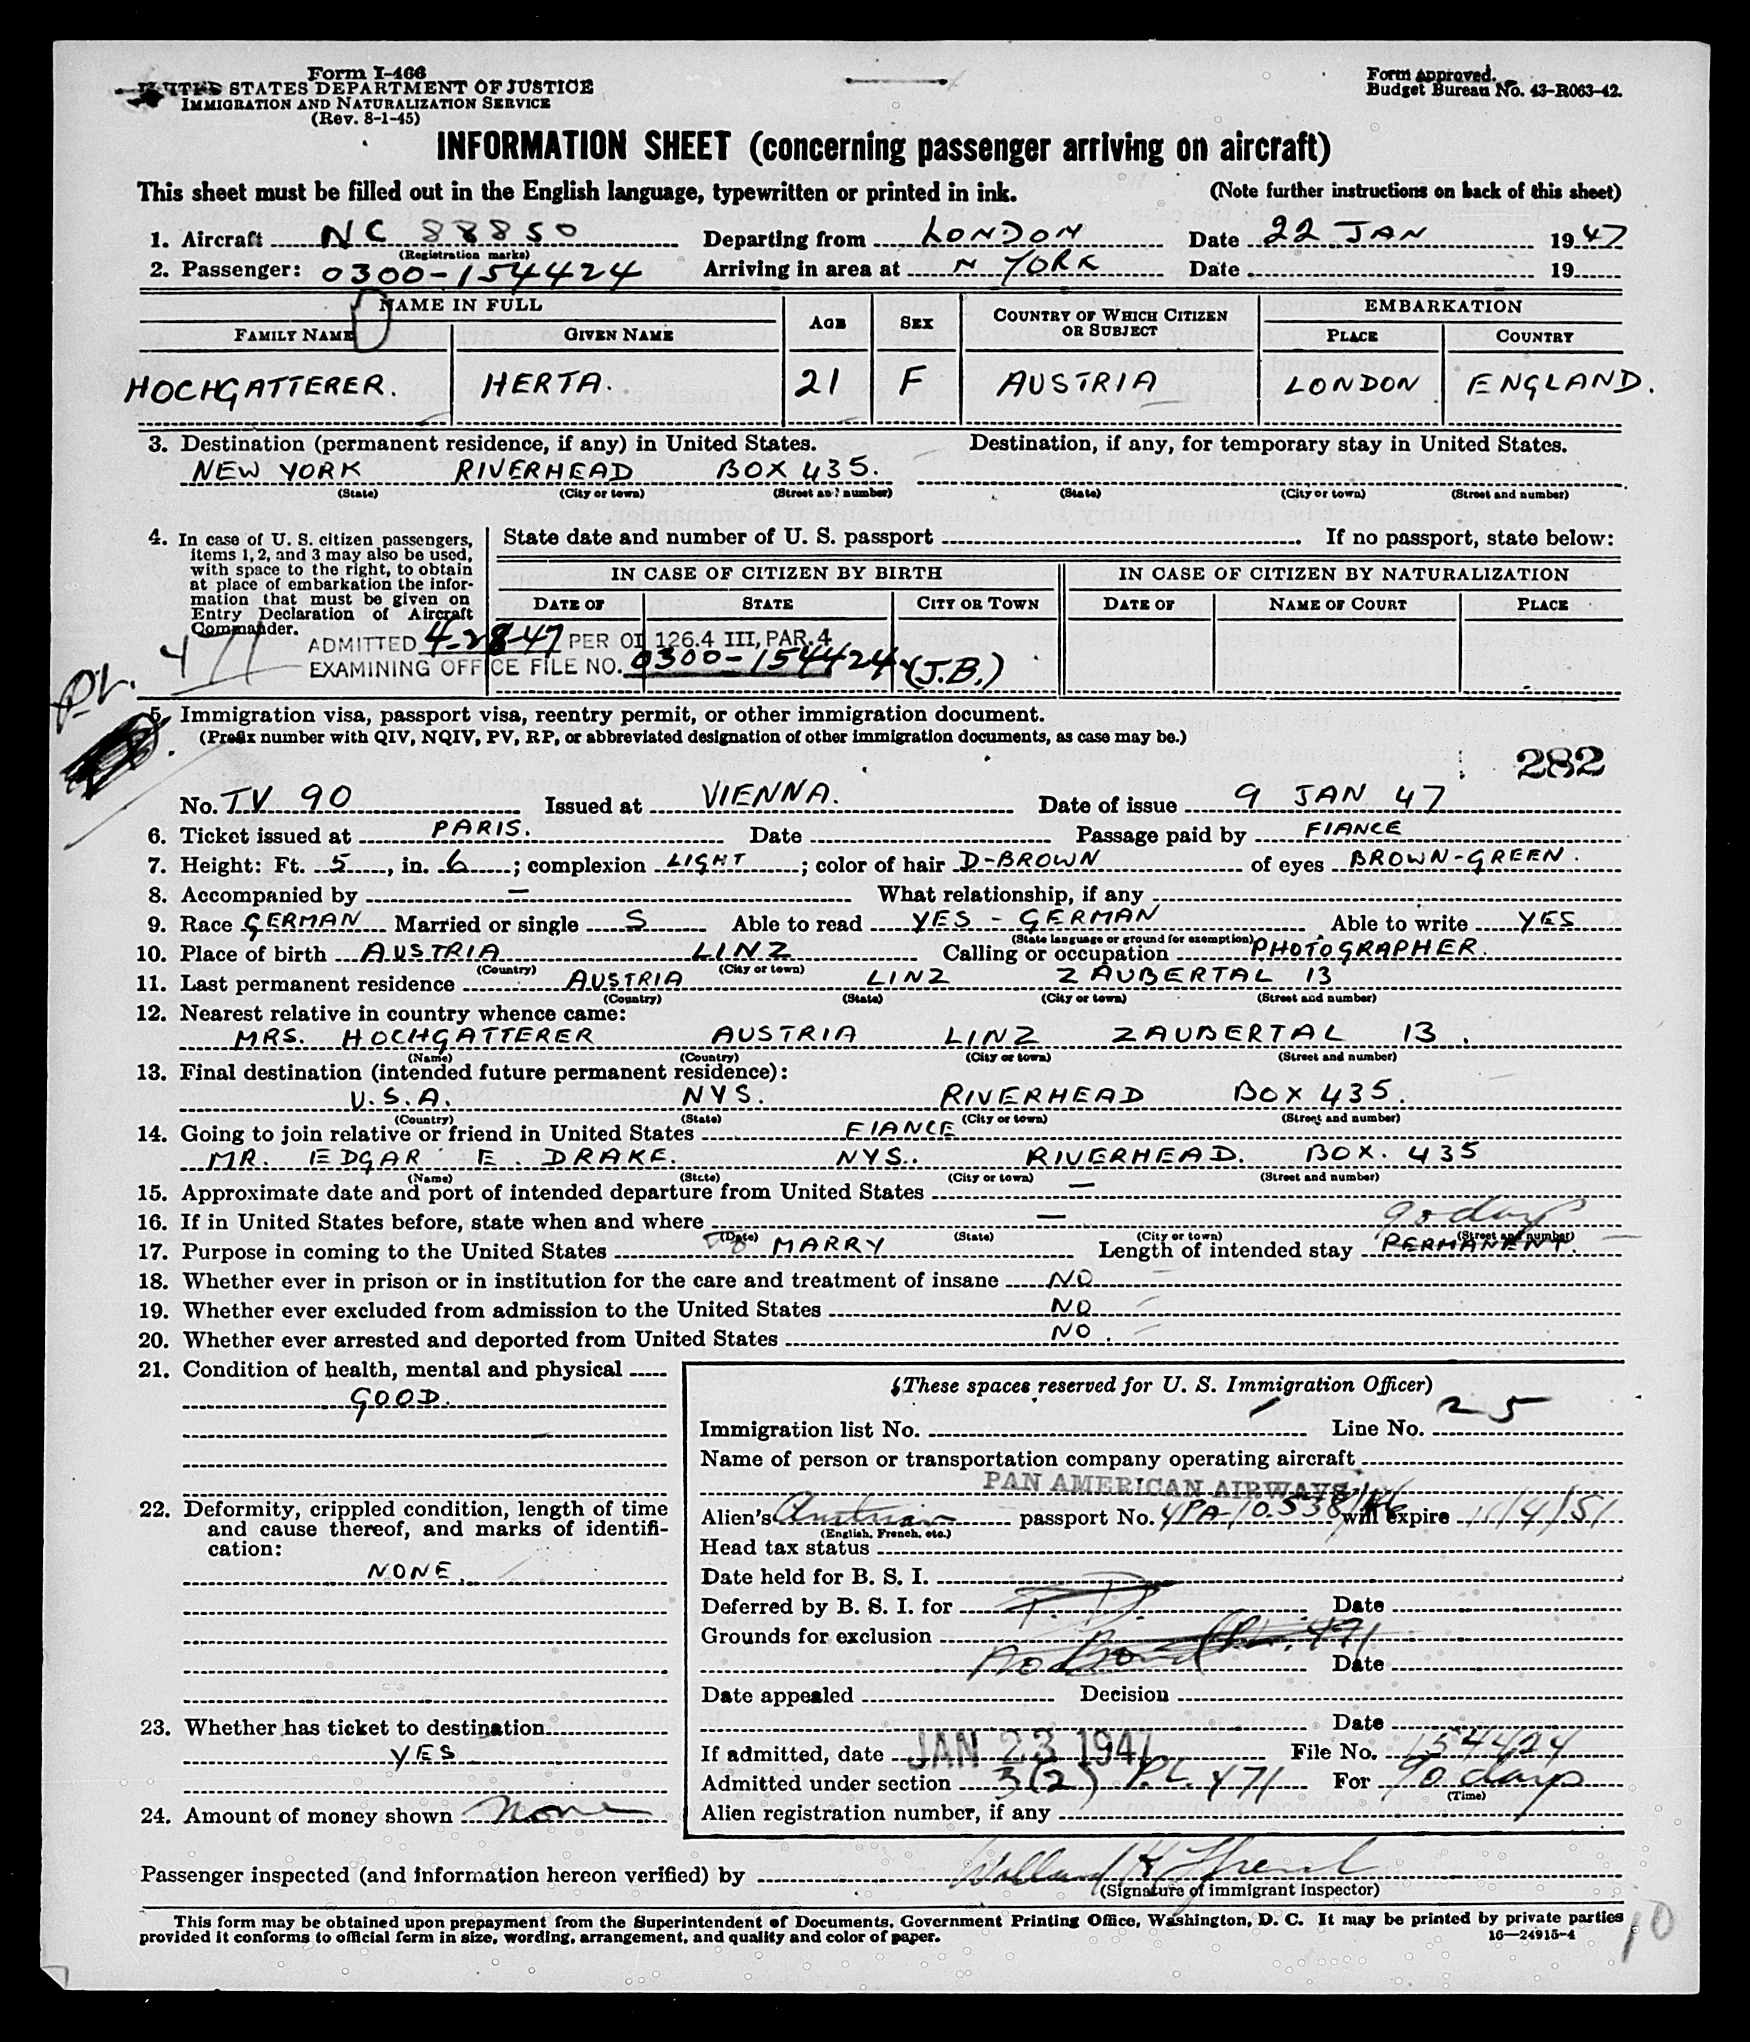 Form I-466
UNITED STATES DEPARTMENT OF JUSTICE
IMMIGRATION AND NATURALIZATION SERVICE
(Rev. 8-1-45)
Form approved.
Budget Bureau No. 43-R063-42.
INFORMATION SHEET (concerning passenger arriving on aircraft)
This sheet must be filled out in the English language, typewritten or printed in ink. (Note further instructions on back of this sheet)
1. Aircraft NC 88850 Departing from LONDON Date 22 JAN 1947
(Registration marks)
2. Passenger: 0300-154424 Arriving in area at N YORK Date 19
NAME IN FULL AGE SEX COUNTRY OF WHICH CITIZEN OR SUBJECT EMBARKATION
FAMILY NAME GIVEN NAME PLACE COUNTRY
HOCHGATTERER. HERTA. 21 F AUSTRIA LONDON ENGLAND.
3. Destination (permanent residence, if any) in United States. Destination, if any, for temporary stay in United States.
NEW YORK RIVERHEAD BOX 435.
(State) (City or town) (Street and number) (State) (City or town) (Street and number)
4. In case of U. S. citizen passengers,
items 1, 2, and 3 may also be used,
with space to the right, to obtain
at place of embarkation the infor-
mation that must be given on
Entry Declaration of Aircraft
Commander.
State date and number of U. S. passport If no passport, state below:
IN CASE OF CITIZEN BY BIRTH IN CASE OF CITIZEN BY NATURALIZATION
DATE OF STATE CITY OR TOWN DATE OF NAME OF COURT PLACE
ADMITTED 4-28-47 PER OI 126.4 III, PAR. 4
EXAMINING OFFICE FILE NO. 0300-154424 (J.B.)
P.L. 471
5. Immigration visa, passport visa, reentry permit, or other immigration document.
(Prefix number with QIV, NQIV, PV, RP, or abbreviated designation of other immigration documents, as case may be.)
282
No. T.V 90 Issued at VIENNA. Date of issue 9 JAN 47
6. Ticket issued at PARIS. Date Passage paid by FIANCE
7. Height: Ft. 5, in. 6; complexion LIGHT; color of hair D-BROWN of eyes BROWN-GREEN.
8. Accompanied by — What relationship, if any
9. Race GERMAN Married or single S Able to read YES - GERMAN Able to write YES
(State language or ground for exemption)
10. Place of birth AUSTRIA LINZ Calling or occupation PHOTOGRAPHER.
(Country) (City or town)
11. Last permanent residence AUSTRIA LINZ ZAUBERTAL 13
(Country) (State) (City or town) (Street and number)
12. Nearest relative in country whence came:
MRS. HOCHGATTERER AUSTRIA LINZ ZAUBERTAL 13.
(Name) (Country) (City or town) (Street and number)
13. Final destination (intended future permanent residence):
U.S.A. NYS. RIVERHEAD BOX 435.
(Country) (State) (City or town) (Street and number)
14. Going to join relative or friend in United States FIANCE
MR. EDGAR E. DRAKE. NYS. RIVERHEAD. BOX. 435
(Name) (State) (City or town) (Street and number)
15. Approximate date and port of intended departure from United States —
16. If in United States before, state when and where —
(Date) (State) (City or town) (Street and number)
90 days
17. Purpose in coming to the United States TO MARRY Length of intended stay PERMANENT.
18. Whether ever in prison or in institution for the care and treatment of insane NO
19. Whether ever excluded from admission to the United States NO
20. Whether ever arrested and deported from United States NO.
21. Condition of health, mental and physical
GOOD.
22. Deformity, crippled condition, length of time
and cause thereof, and marks of identifi-
cation:
NONE.
23. Whether has ticket to destination
YES
24. Amount of money shown None
(These spaces reserved for U. S. Immigration Officer)
Immigration list No. 1 Line No. 25
Name of person or transportation company operating aircraft
PAN AMERICAN AIRWAYS
Alien's Austrian passport No. will expire 11/4/51
(English, French, etc.)
Head tax status
Date held for B. S. I.
Deferred by B. S. I. for Date
Grounds for exclusion
No Bond Date
Date appealed Decision
Date
If admitted, date JAN 23 1947 File No. 154424
Admitted under section 3(2) P.L. 471 For 90 days
(Time)
Alien registration number, if any
Passenger inspected (and information hereon verified) by
(Signature of immigrant inspector)
This form may be obtained upon prepayment from the Superintendent of Documents, Government Printing Office, Washington, D. C. It may be printed by private parties
provided it conforms to official form in size, wording, arrangement, and quality and color of paper. 16—24915-4
10